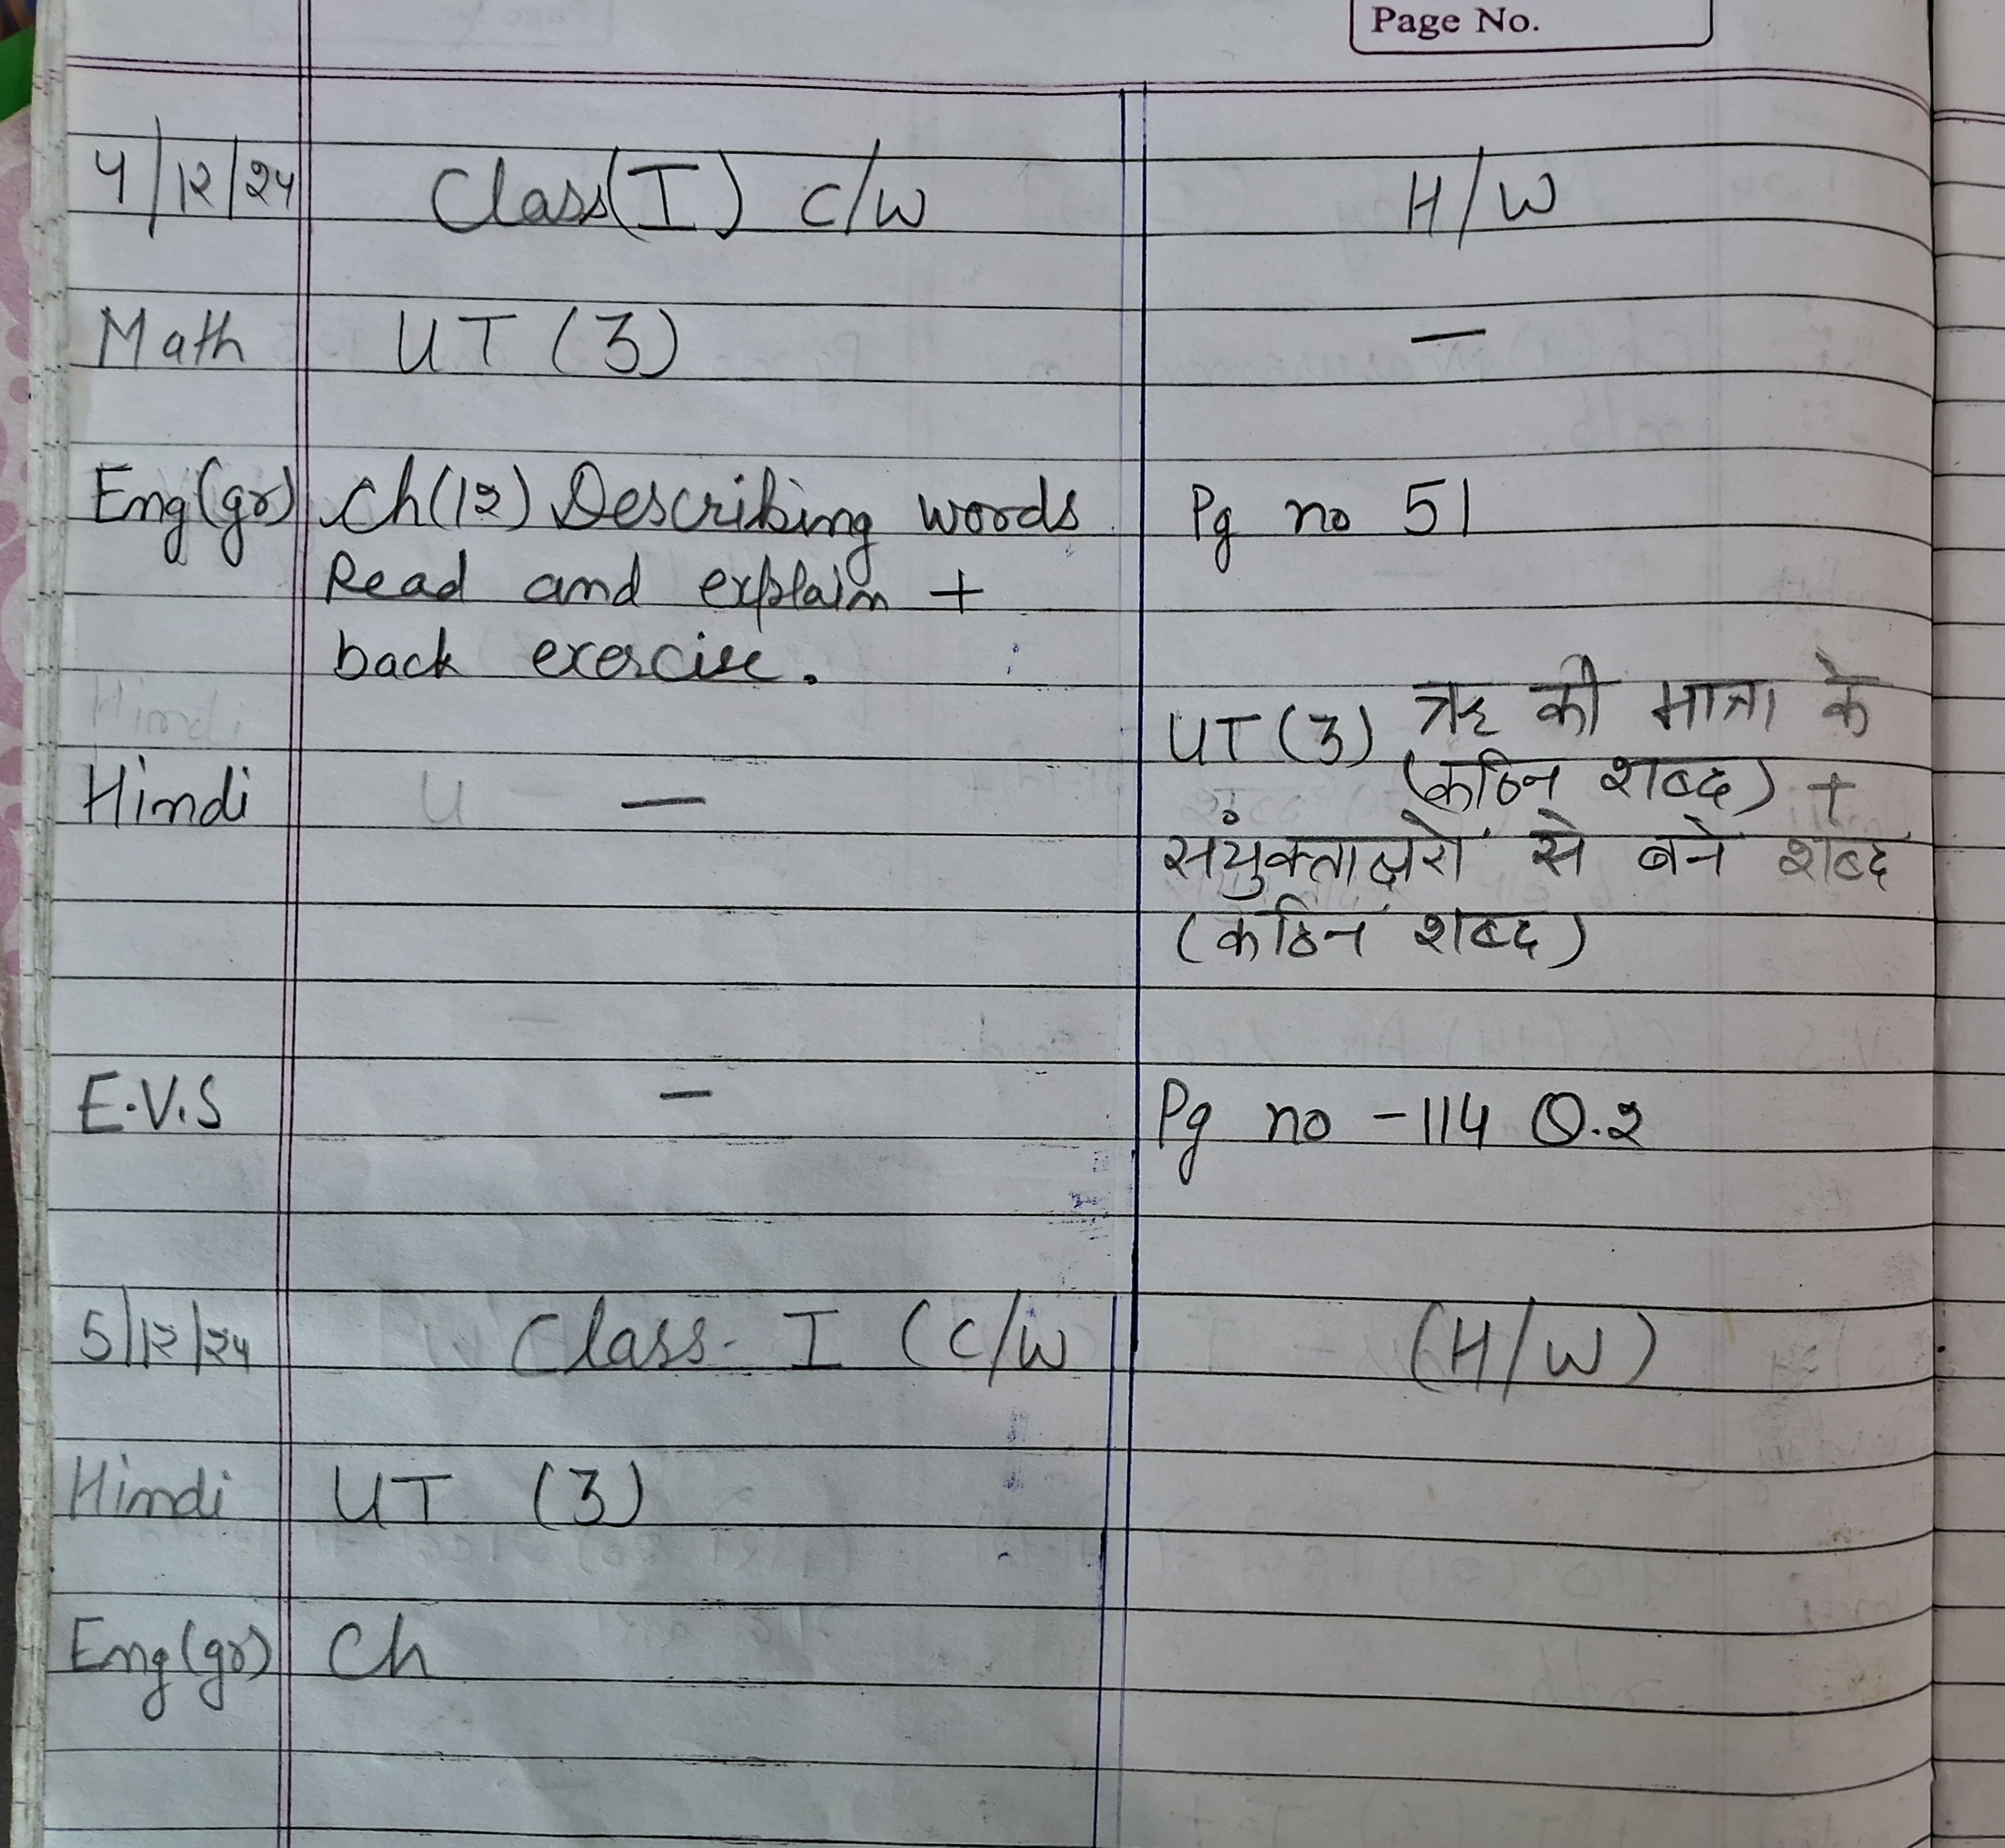 Page No.
4/12/24 Class(I) C/W H/W
Math UT (3) —
Eng(gr) Ch(12) Describing words Pg no 51
Read and explain +
back exercise.
UT(3) ऋ की मात्रा के
(कठिन शब्द) +
Hindi —
संयुक्ताक्षरों से बने शब्द
(कठिन शब्द)
E.V.S — Pg no - 114 Q.2
5/12/24 Class- I (C/W (H/W)
Hindi UT (3)
Eng(gr) Ch